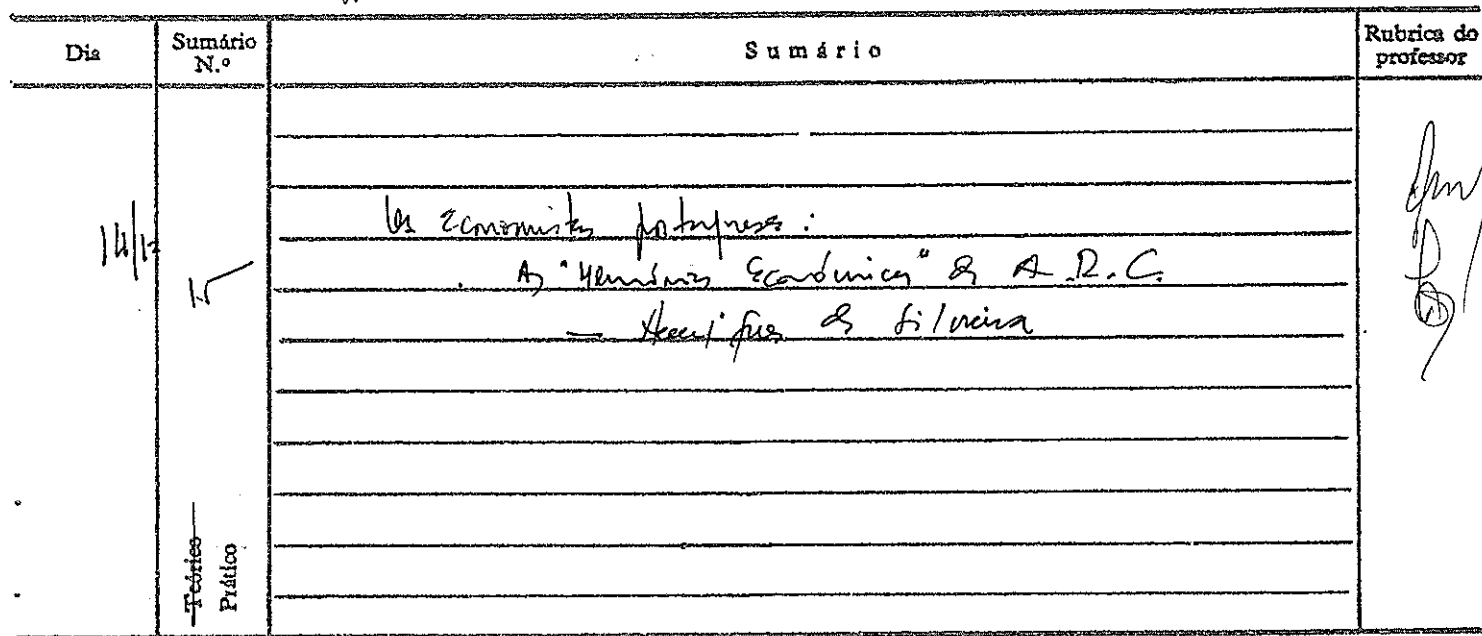 Dia
Sumário N.º
Sumário
Rubrica do professor
14/12
15
Os economistas portugueses:
. As "Memórias Económicas" da A. R. C.
— Henriques da Silveira
Teórico
Prático